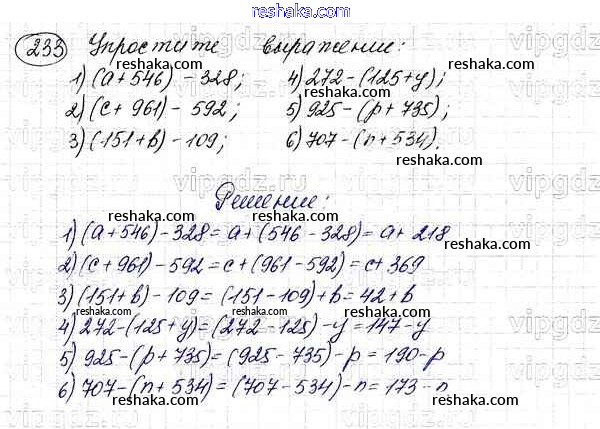 reshaka.com
233 Упростите выражение:
1) (a+546) - 328; 4) 272-(125+y);
reshaka.com reshaka.com
2) (c+ 961) - 592; 5) 925 - (p + 735);
reshaka.com reshaka.com
3) (151+b) - 109; 6) 707 - (n + 534).
reshaka.com reshaka.com
Решение:
reshaka.com
1) (a+546) - 328 = a + (546 - 328) = a + 218
reshaka.com reshaka.com reshaka.com
2) (c + 961) - 592 = c + (961 - 592) = c + 369
3) (151 + b) - 109 = (151 - 109) + b = 42 + b
reshaka.com reshaka.com reshaka.com
4) 272-(125+y) = (272 - 125) - y = 147 - y
reshaka.com reshaka.com reshaka.com
5) 925 - (p + 735) = (925 - 735) - p = 190 - p
reshaka.com reshaka.com reshaka.com
6) 707 - (n + 534) = (707 - 534) - n = 173 - n
reshaka.com reshaka.com reshaka.com